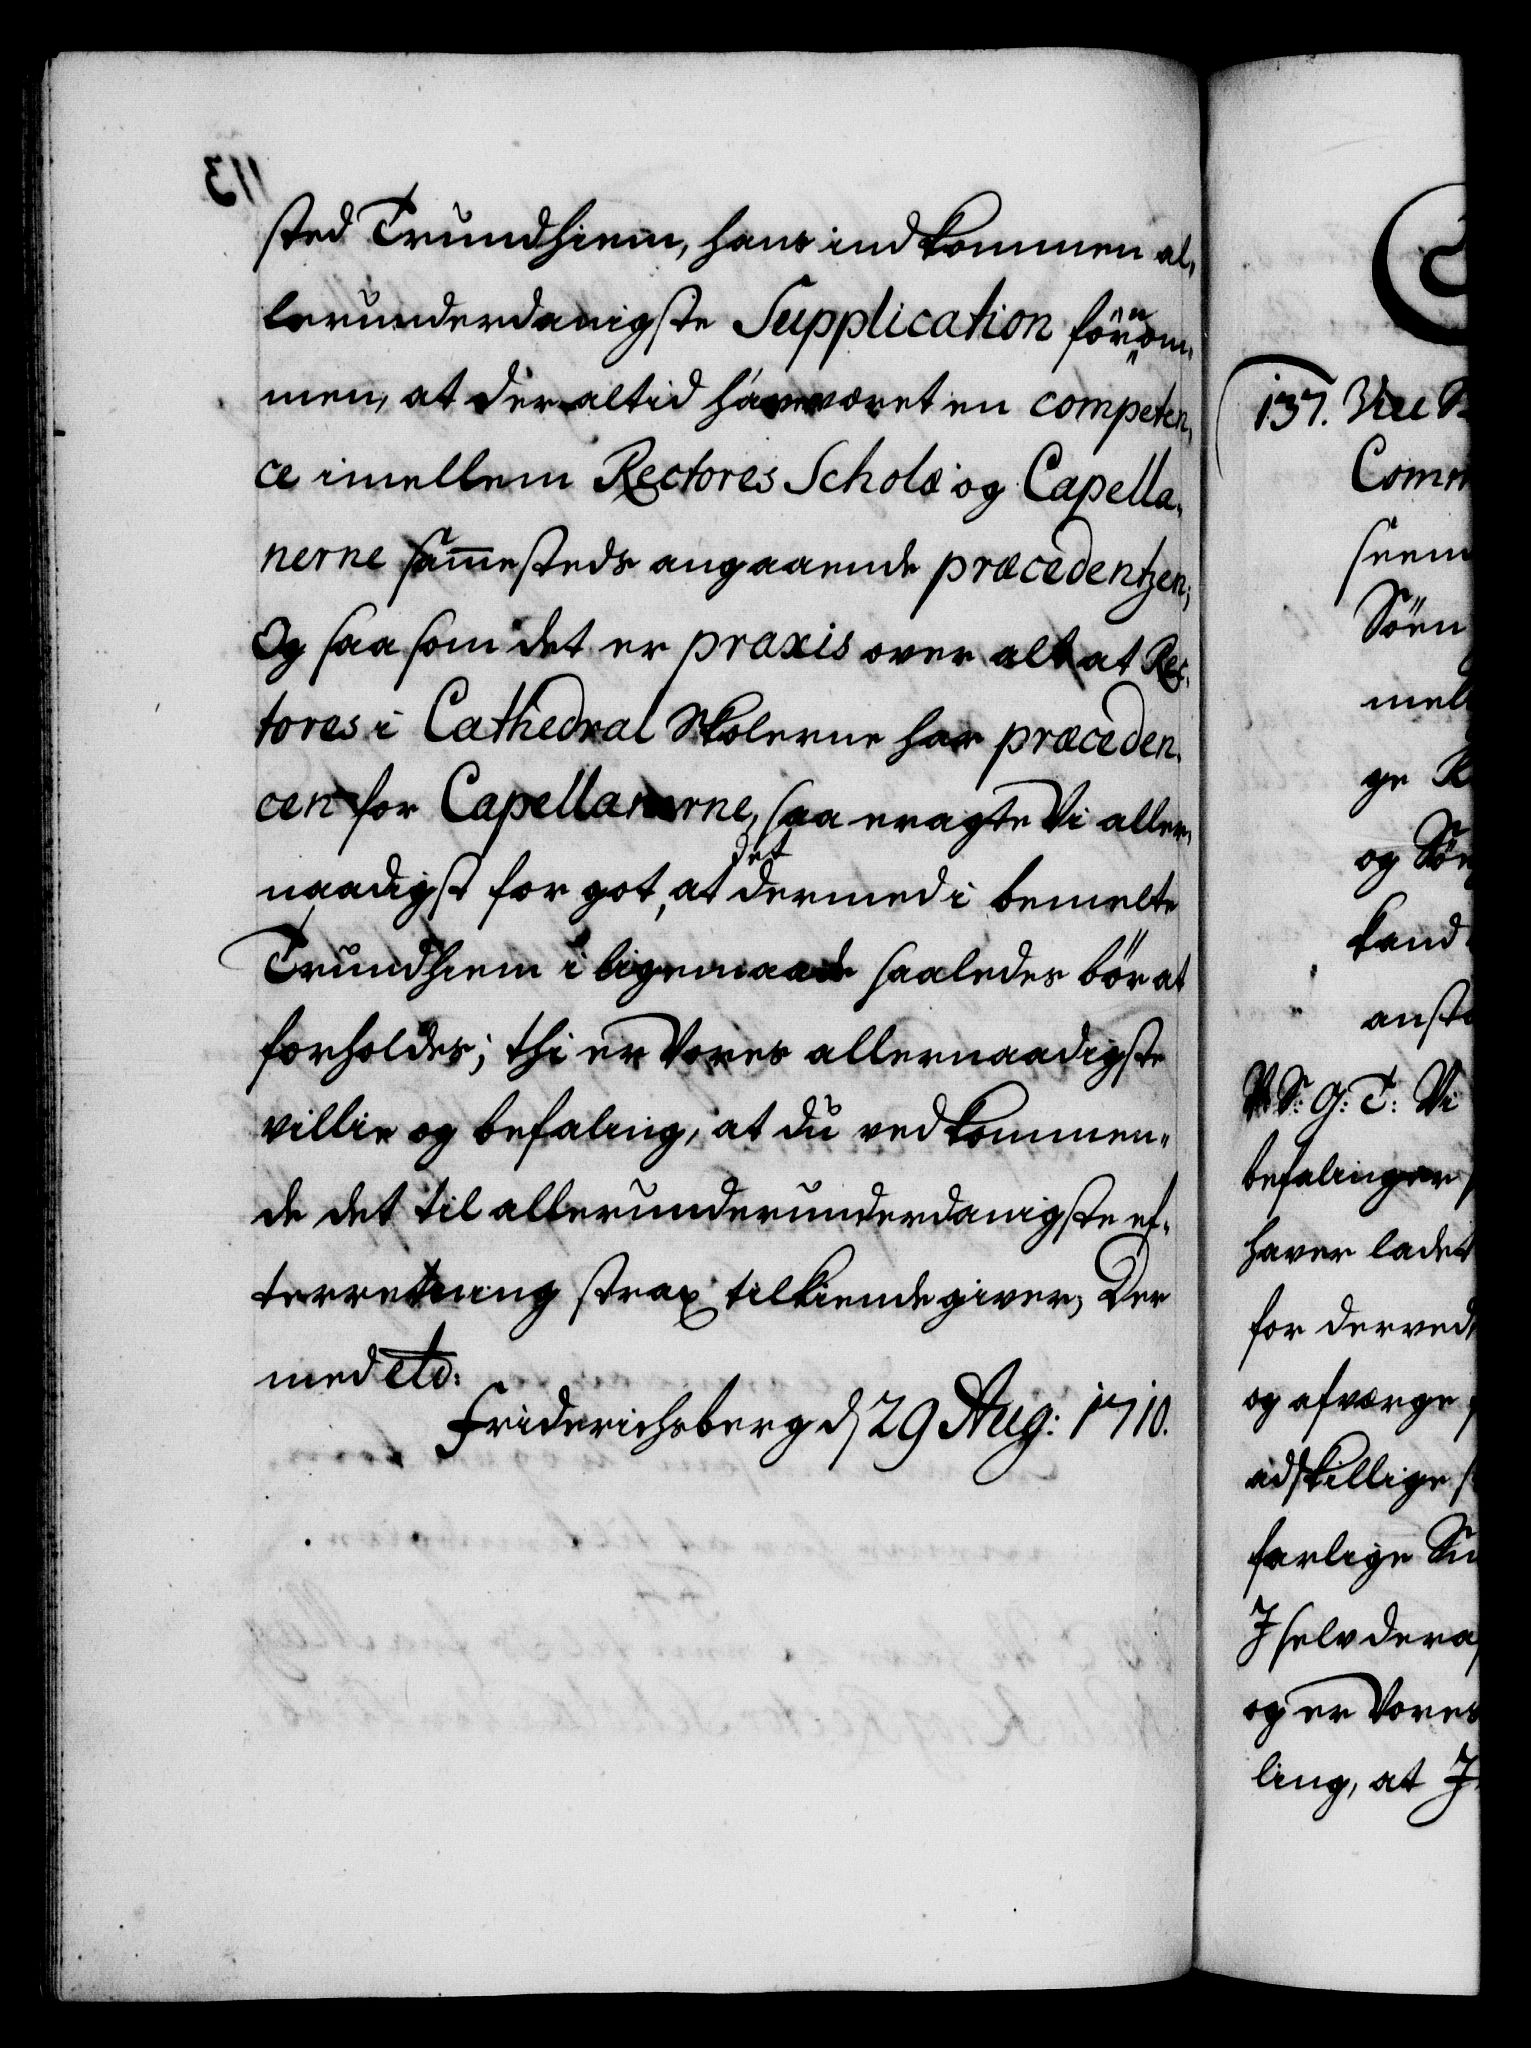 113
sted Trundhiem, hans indkommen al,
lerunderdanigste Supplication förnom,
men, at der altid har været en competen,
ce imellem Rectores Scholæ og Capella,
nerne sam̄esteds angaaende præcedentzen;
Og saasom det er praxis over alt at Rec,
tores i Cathedral Skolerne har præceden,
cen for Capellanerne, saa eragte Vi aller,
naadigst for got, at det dermed i bemelte
Trundhiem i ligemaade saaledes bör at
forholdes; thi er Vores allernaadigste
villie og befaling, at du vedkommen,,
de det til allerunderunderdanigste ef,
terretning strax tilkiendegiver; Der
med etc:
Friderichsberg d 29 Aug: 1710.
137.
Comm
Sören
mel
ge
og Sör
kand
anst
V. S. G. T: Vi
befalinger
haver ladet
for derved
og afværge
adskillige
farlige
I selv dera
og er Vores
ling, at I